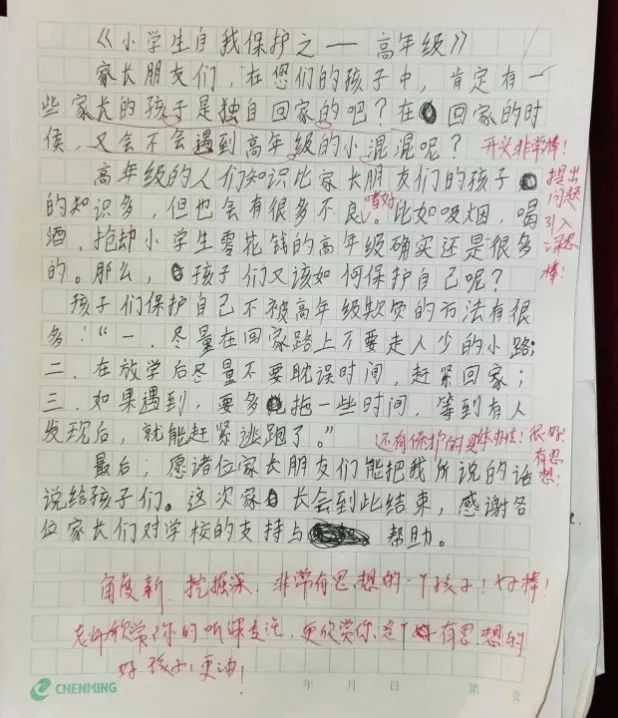 《小学生自我保护之——高年级》
家长朋友们，在您们的孩子中，肯定有一
些家长的孩子是独自回家的吧？在回家的时
候，又会不会遇到高年级的小混混呢？
开头非常棒！
高年级的人们知识比家长朋友们的孩子
的知识多，但也会有很多不良嗜好。比如吸烟，喝
酒，抢劫小学生零花钱的高年级确实还是很多
的。那么，孩子们又该如何保护自己呢？
提出
问题
引入
深思
棒！
孩子们保护自己不被高年级欺负的方法有很
多：“一．尽量在回家路上不要走人少的小路；
二．在放学后尽量不要耽误时间，赶紧回家；
三．如果遇到，要多拖一些时间，等到有人
发现后，就能赶紧逃跑了。”
还有保护的具体办法！很好！
有思
想！
最后，愿诸位家长朋友们能把我所说的话
说给孩子们。这次家长会到此结束，感谢各
位家长们对学校的支持与帮助。
角度新．挖掘深．非常有思想的一个孩子！好棒！
老师欣赏你的听课专注，更欣赏你是个有思想的
好孩子！更油！
CHENMING
年 月 日
第 页